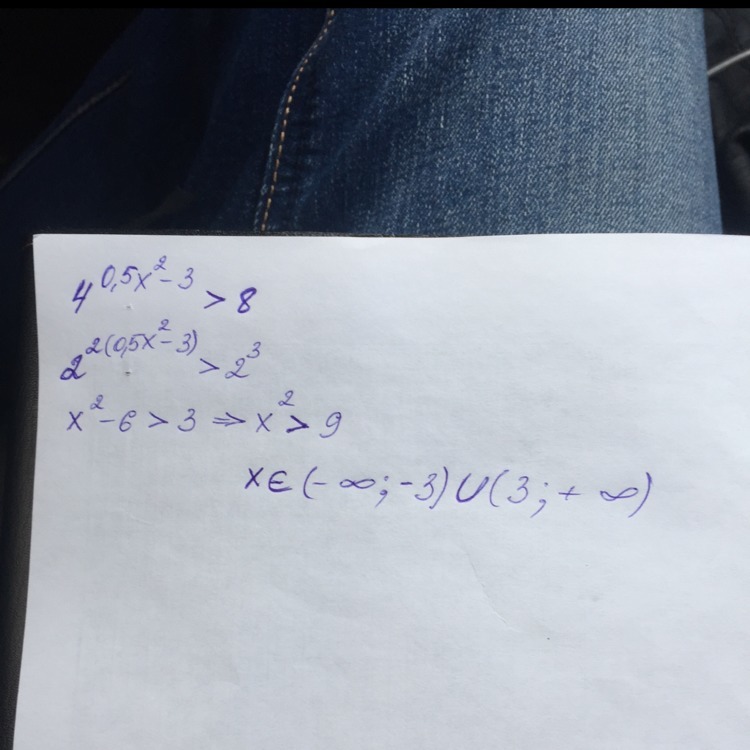 4^(0,5x²-3) > 8
2^(2(0,5x²-3)) > 2³
x²-6 > 3 ⇒ x² > 9
x∈(-∞;-3)∪(3;+∞)